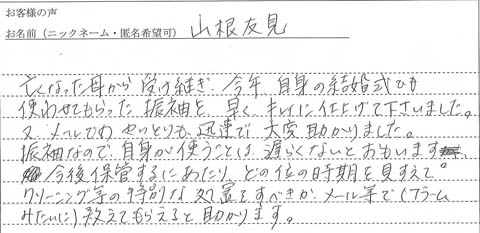 お客様の声
お名前(ニックネーム・匿名希望可) 山根友見
亡くなった母から受け継ぎ、今年自身の結婚式でも
使わせてもらった振袖を、早くキレイに仕上げて下さいました。
又、メールでのやりとりも迅速で大変助かりました。
振袖なので、自身が使うことは、遅らくないとおもいます
今後保管するにあたり、どの位の時期を見すえて
クリーニング等の特別な処置をすべきか、メール等で(アラーム
みたいに)教えてもらえると助かります。